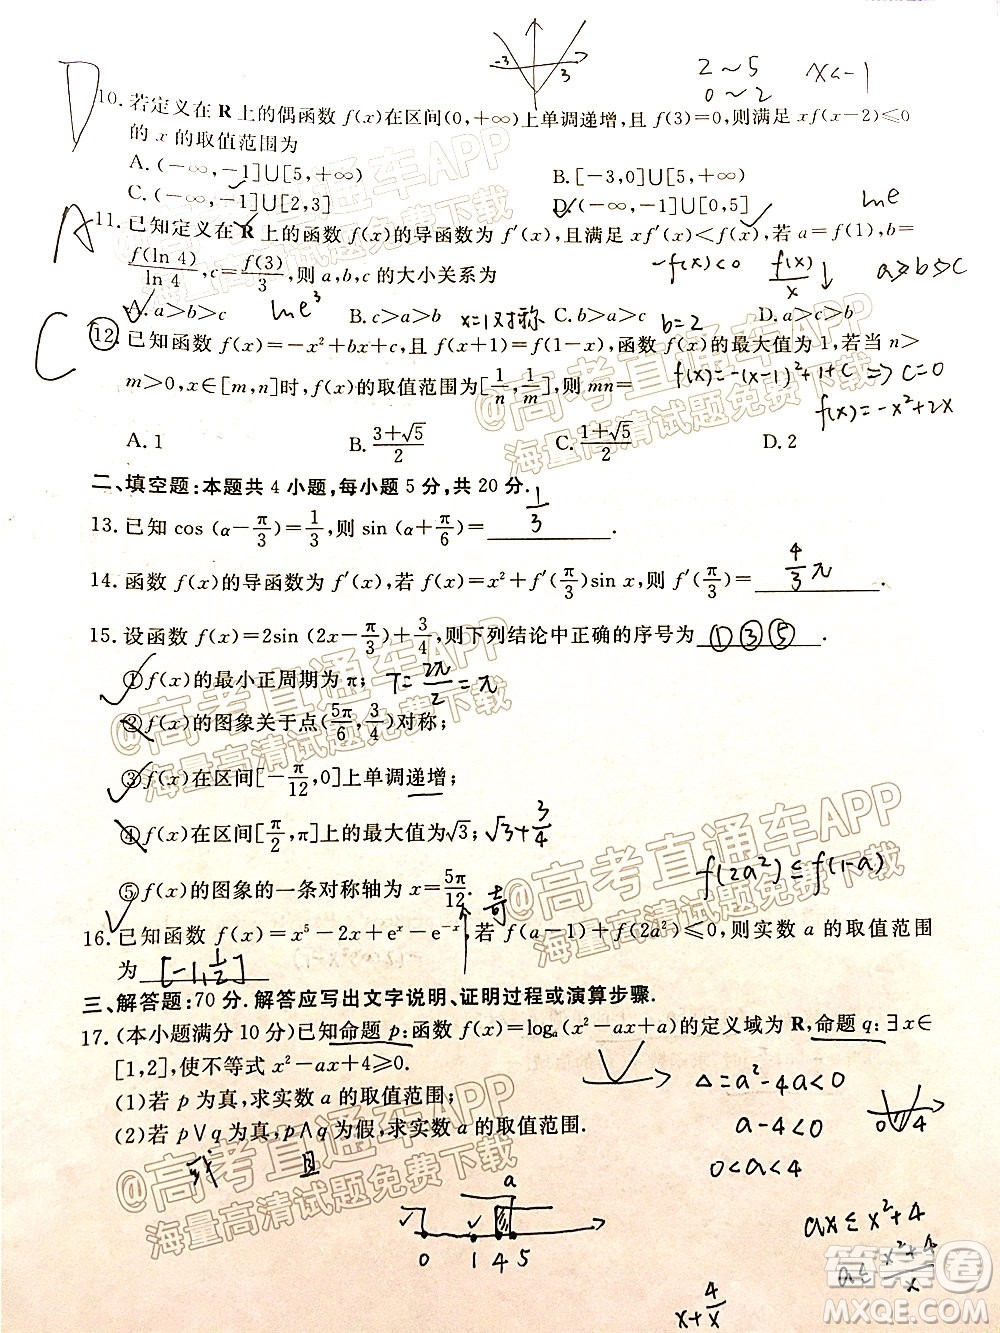 -3 3
2～5 x<-1
0～2
D
10. 若定义在 R 上的偶函数 f(x)在区间(0,+∞)上单调递增,且 f(3)=0,则满足 xf(x-2)≤0
的 x 的取值范围为
A. (-∞,-1]∪[5,+∞) B. [-3,0]∪[5,+∞)
C. (-∞,-1]∪[2,3] D. (-∞,-1]∪[0,5] lne
A
11. 已知定义在 R 上的函数 f(x)的导函数为 f′(x),且满足 xf′(x)<f(x),若 a=f(1),b=
f(ln 4)/ln 4,c=f(3)/3,则 a,b,c 的大小关系为 -f(x)<0 f(x)/x↓ a>b>c
A. a>b>c lne³ B. c>a>b C. b>a>c D. a>c>b
C x=1对称 b=2
12. 已知函数 f(x)=-x²+bx+c,且 f(x+1)=f(1-x),函数 f(x)的最大值为 1,若当 n>
m>0,x∈[m,n]时,f(x)的取值范围为[1/n,1/m],则 mn= f(x)=-(x-1)²+1+C⇒C=0
f(x)=-x²+2x
A. 1 B. (3+√5)/2 C. (1+√5)/2 D. 2
二、填空题:本题共 4 小题,每小题 5 分,共 20 分.
13. 已知 cos (α-π/3)=1/3,则 sin (α+π/6)= 1/3 .
14. 函数 f(x)的导函数为 f′(x),若 f(x)=x²+f′(π/3)sin x,则 f′(π/3)= 4/3 π .
15. 设函数 f(x)=2sin (2x-π/3)+3/4,则下列结论中正确的序号为 ①③⑤ .
①f(x)的最小正周期为 π; T=2π/2=π
②f(x)的图象关于点(5π/6,3/4)对称;
③f(x)在区间[-π/12,0]上单调递增;
④f(x)在区间[π/2,π]上的最大值为√3; √3+3/4
⑤f(x)的图象的一条对称轴为 x=5π/12. 奇 f(2a²)≤f(1-a)
16. 已知函数 f(x)=x⁵-2x+eˣ-e⁻ˣ,若 f(a-1)+f(2a²)≤0,则实数 a 的取值范围
为 [-1,1/2] .
三、解答题:70 分. 解答应写出文字说明、证明过程或演算步骤.
17. (本小题满分 10 分)已知命题 p:函数 f(x)=logₐ(x²-ax+a)的定义域为 R,命题 q:∃x∈
[1,2],使不等式 x²-ax+4≥0.
(1)若 p 为真,求实数 a 的取值范围;
(2)若 p∨q 为真,p∧q 为假,求实数 a 的取值范围.
或 且
△=a²-4a<0
a-4<0 0 4
0<a<4
a
0 1 4 5
ax≤x²+4
a≤(x²+4)/x
x+4/x
@高考直通车APP
海量高清试题免费下载
@高考直通车APP
海量高清试题免费下载
@高考直通车APP
海量高清试题免费下载
@高考直通车APP
海量高清试题免费下载
@高考直通车APP
海量高清试题免费下载
答案圈
MXQE.COM